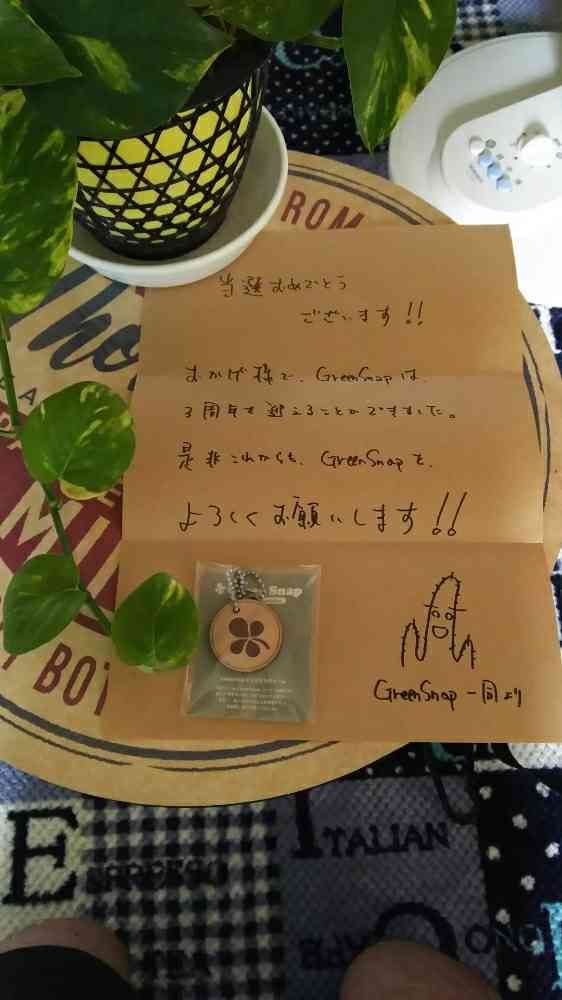 ROM
Tho
当選おめでとう
ございます!!
おかげ様で、GreenSnapは、
3周年を迎えることができました。
是非これからも、GreenSnapを、
よろしくお願いします!!
Snap
MIL
BOT
GreenSnap一同より
E
ITALIAN